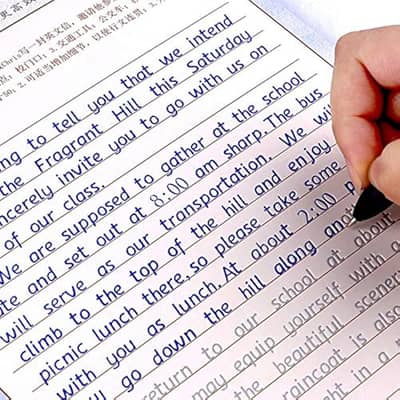 Chris写一封英文信,邀请他参
点:校门口; 3.交通工具:公交车;
2.可适当增加细节,以使行文连贯; 3.
ng to tell you that we intend
the Fragrant Hill this Saturday
ncerely invite you to go with us on
of our class.
We are supposed to gather at the school
te and set out at 8:00 am sharp. The bus
will serve as our transportation. We will
climb to the top of the hill and enjoy
picnic lunch there, so please take some
with you as lunch. At about 2:00 p
go down the hill along ano
return to our school at about
may equip yourself with a
the beautiful scenery
raincoat is also
in a